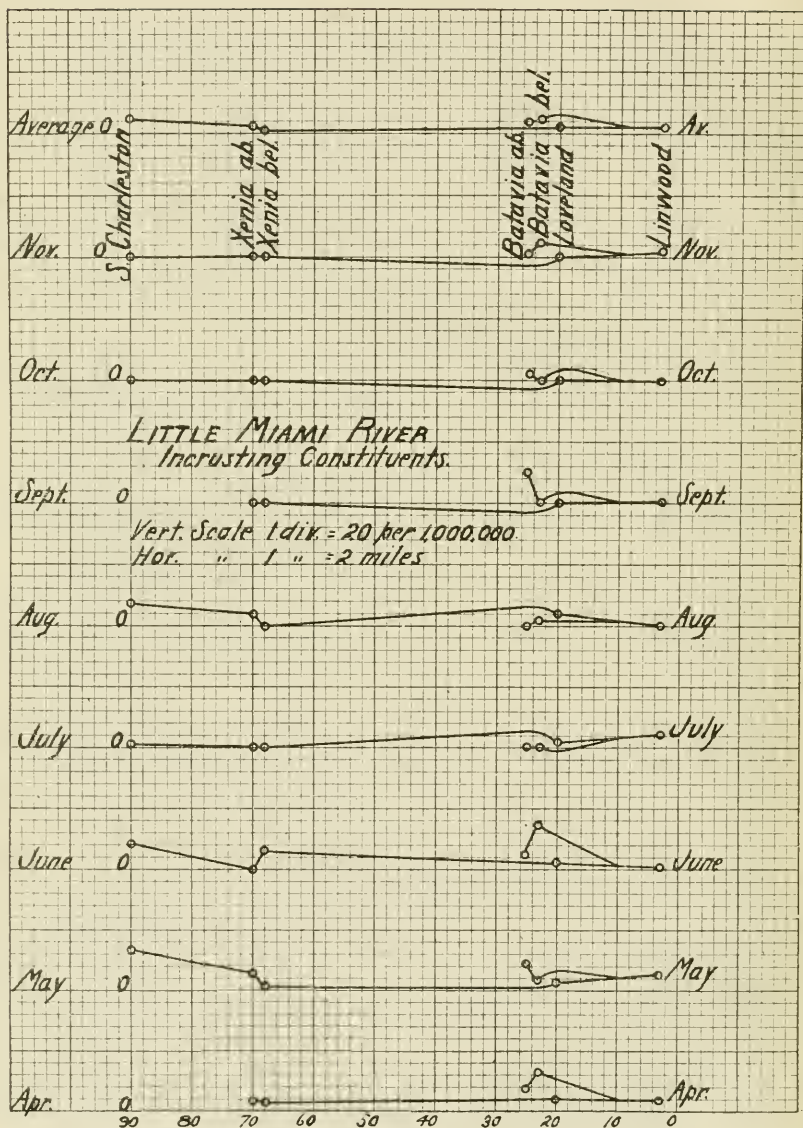 Average 0
S. Charleston
Xenia ab.
Xenia bel.
Batavia ab.
Batavia bel.
Loveland
Linwood
Av.
Nov. 0
Nov.
Oct. 0
Oct.
LITTLE MIAMI RIVER
Incrusting Constituents.
Sept. 0
Sept.
Vert. Scale 1 div. = 20 per 1,000,000
Hor. " 1 " = 2 miles
Aug. 0
Aug.
July 0
July
June 0
June
May 0
May
Apr. 0
Apr.
90 80 70 60 50 40 30 20 10 0